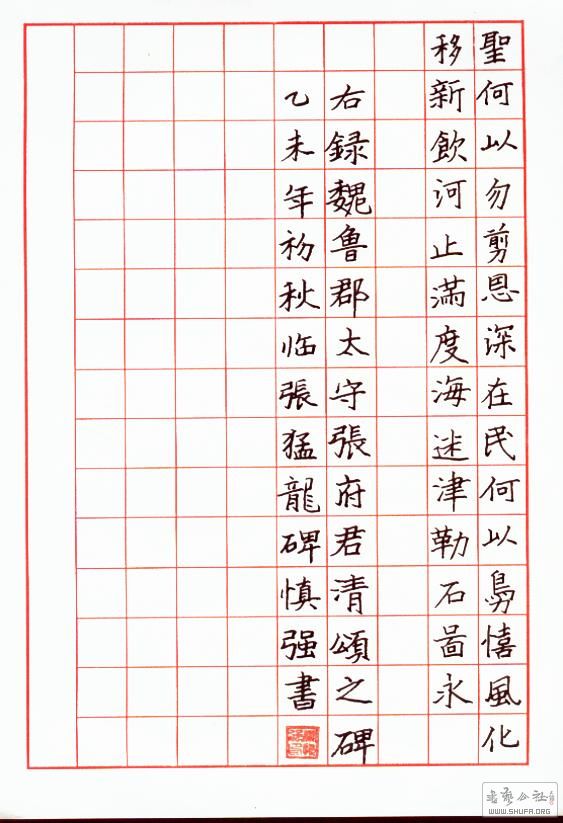 聖何以勿剪恩深在民何以憘風化
移新飲河止滿度海迷津勒石啚永
右録魏鲁郡太守張府君清頌之碑
乙未年初秋临張猛龍碑慎强書
书艺公社
WWW.SHUFA.ORG